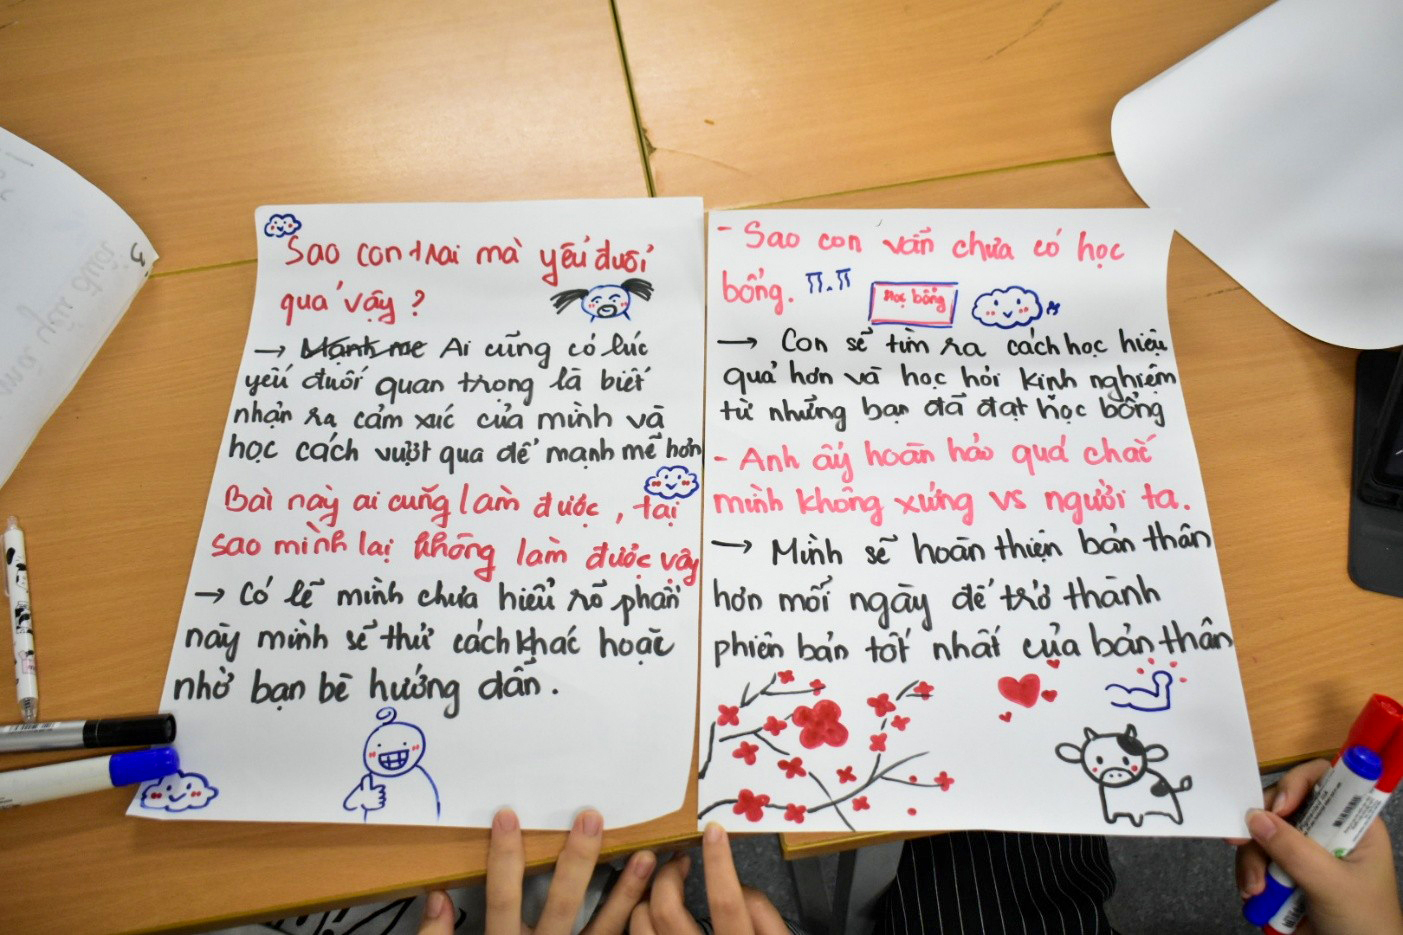 Sao con trai mà yếu đuối
quá vậy ?
→ Mạnh mẽ Ai cũng có lúc
yếu đuối quan trọng là biết
nhận ra cảm xúc của mình và
học cách vượt qua để mạnh mẽ hơn
Bài này ai cũng làm được , tại
sao mình lại không làm được vậy
→ Có lẽ mình chưa hiểu rõ phần
này mình sẽ thử cách khác hoặc
nhờ bạn bè hướng dẫn .
- Sao con vẫn chưa có học
bổng.
Học bổng
→ Con sẽ tìm ra cách học hiệu
quả hơn và học hỏi kinh nghiệm
từ những bạn đã đạt học bổng
- Anh ấy hoàn hảo quá chắc
mình không xứng vs người ta.
→ Mình sẽ hoàn thiện bản thân
hơn mỗi ngày để trở thành
phiên bản tốt nhất của bản thân